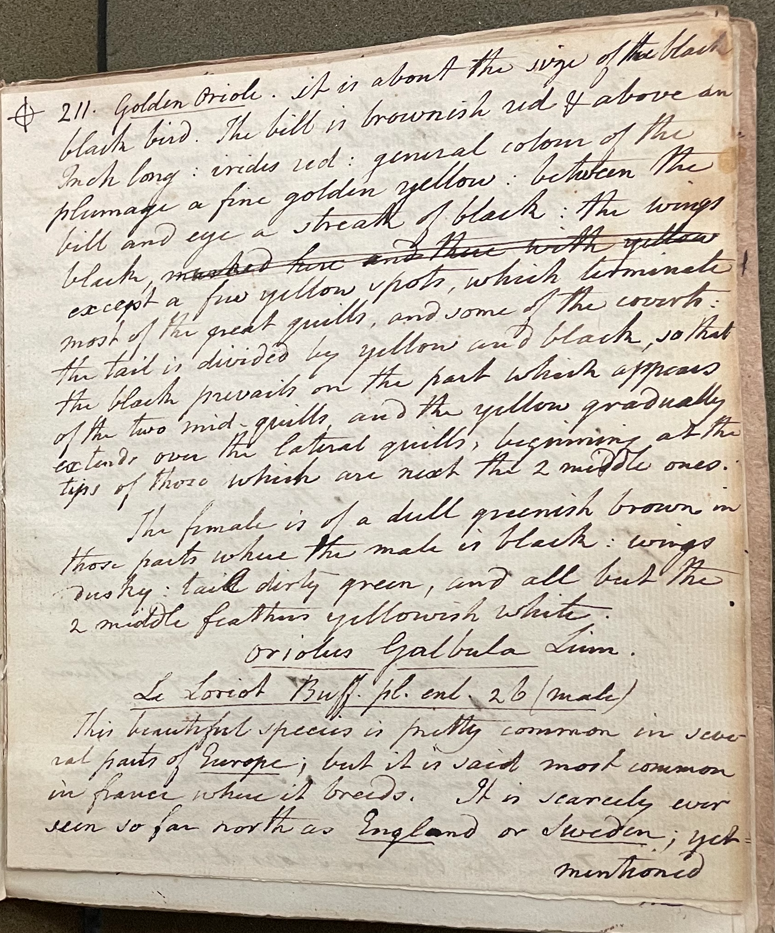 211. Golden Oriole. it is about the size of the black
black bird. The bill is brownish red & above an
Inch long: irides red: general colour of the
plumage a fine golden yellow: between the
bill and eye a streak of black: the wings
black, marked here and there with yellow
except a few yellow spots, which terminate
most of the great quills, and some of the coverts:
the tail is divided by yellow and black, so that
the black prevails on the part which appears
of the two mid-quills, and the yellow gradually
extends over the lateral quills, beginning at the
tips of those which are next the 2 middle ones.
The female is of a dull greenish brown in
those parts where the male is black: wings
dusky: tail dirty green, and all but the
2 middle feathers yellowish white.
oriolus Galbula Linn.
Le Loriot Buff. pl. enl. 26 (male)
This beautiful species is pretty common in seve
ral parts of Europe; but it is said most common
in france where it breeds. It is scarcely ever
seen so far north as England or Sweden; yet
mentioned